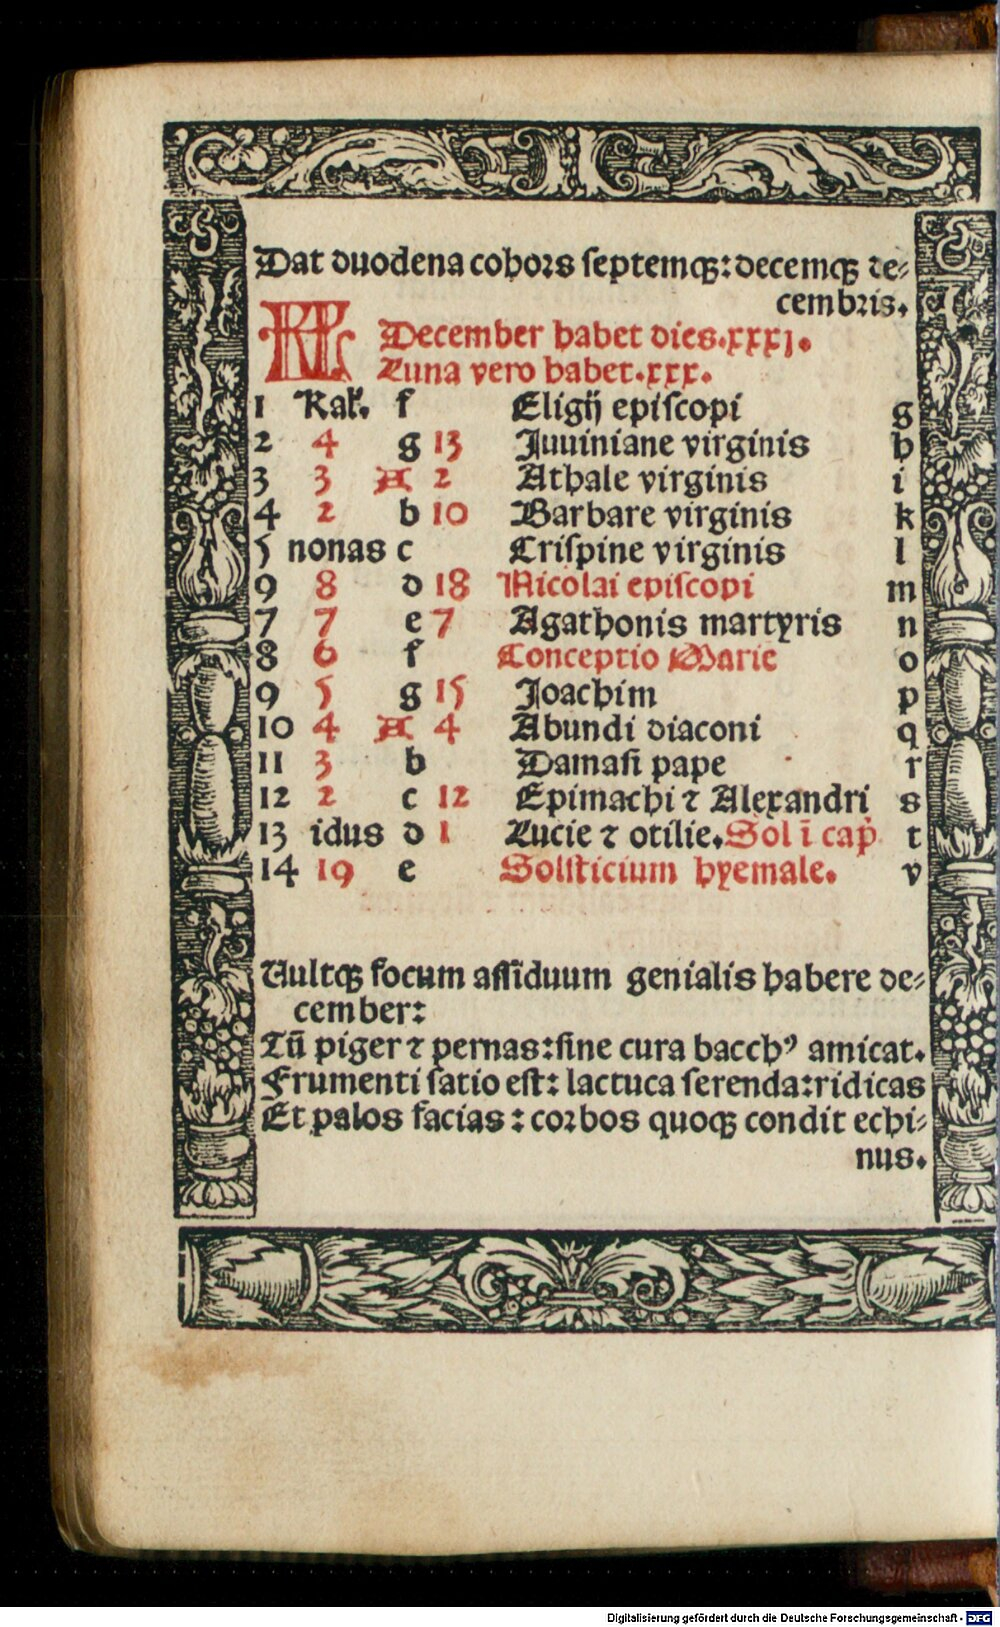 Dat duodena cohors septemqꝫ: decemqꝫ de-
cembris.
KL December habet dies.xxxj.
Luna vero habet.xxx.
1 Kal. f Eligij episcopi g
2 4 g 13 Juuiniane virginis h
3 3 A 2 Athale virginis i
4 2 b 10 Barbare virginis k
5 nonas c Crispine virginis l
9 8 d 18 Nicolai episcopi m
7 7 e 7 Agathonis martyris n
8 6 f Conceptio Marie o
9 5 g 15 Joachim p
10 4 A 4 Abundi diaconi q
11 3 b Damasi pape r
12 2 c 12 Epimachi ⁊ Alexandri s
13 idus d 1 Lucie ⁊ otilie. Sol ī cap̄ t
14 19 e Solsticium hyemale. v
Uultqꝫ focum assiduum genialis habere de-
cember:
Tū piger ⁊ pernas: sine cura bacchꝰ amicat.
Frumenti satio est: lactuca serenda: ridicas
Et palos facias: corbos quoqꝫ condit echi-
nus.
Digitalisierung gefördert durch die Deutsche Forschungsgemeinschaft - DFG